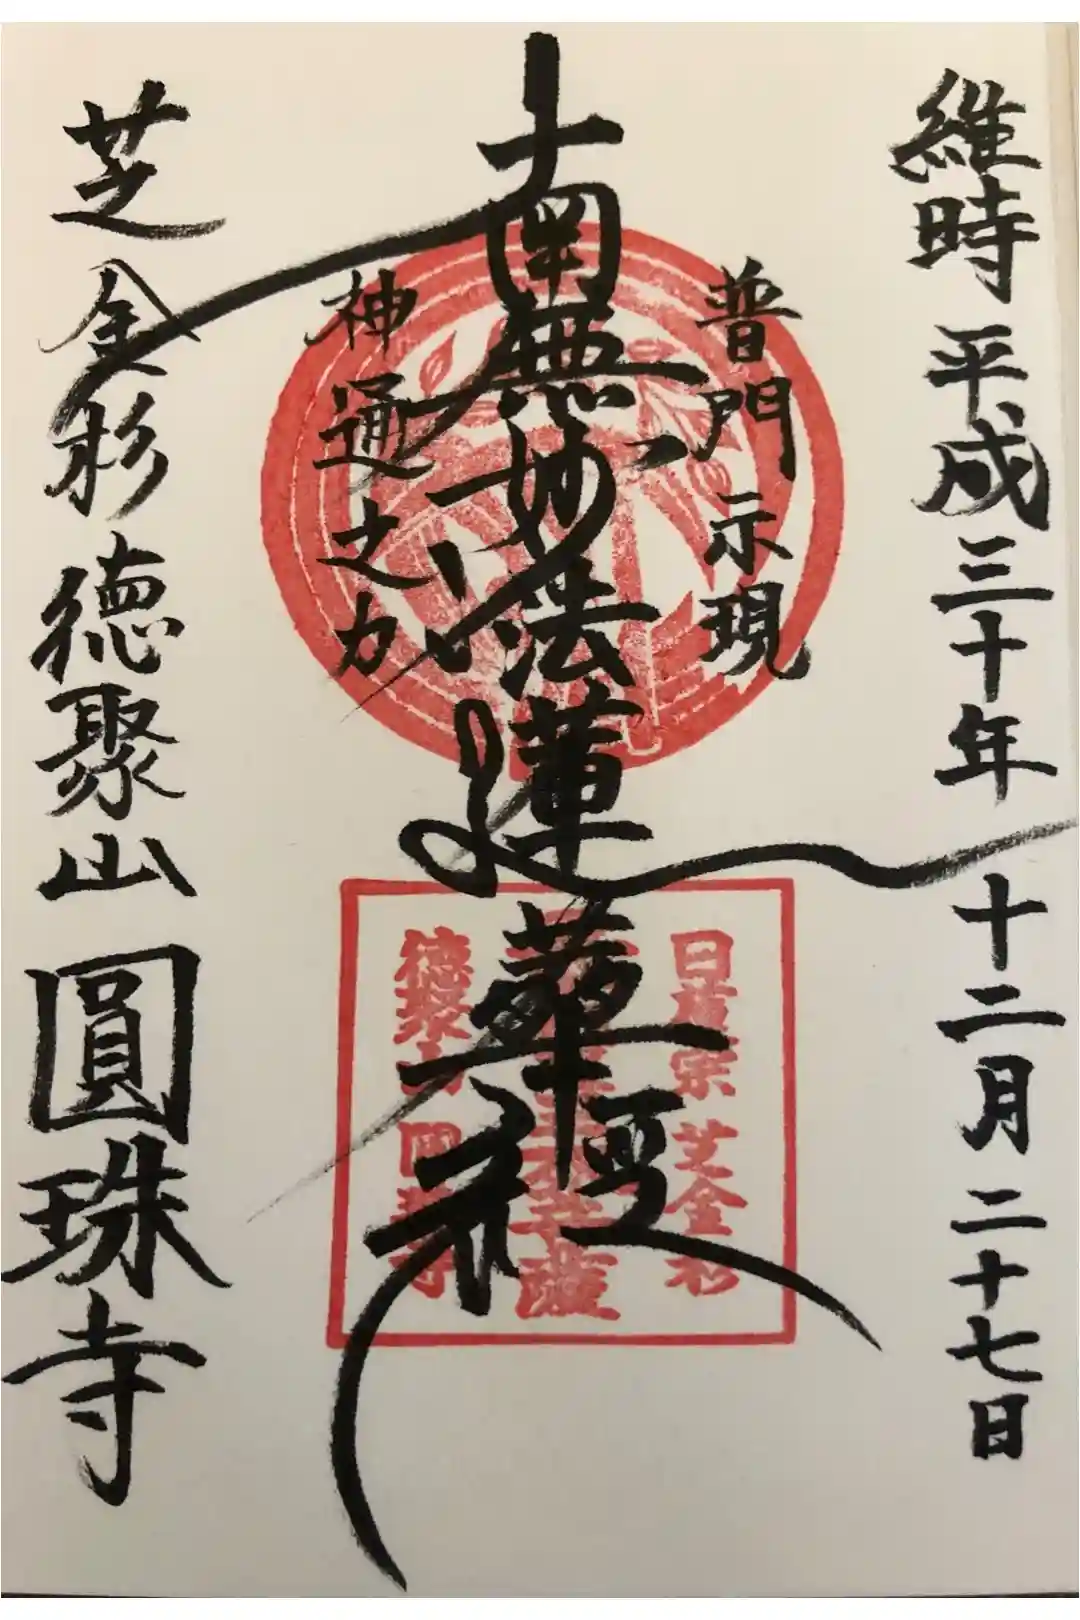 維時 平成三十年 十二月二十七日
普門示現
南無妙法蓮華経
神通之力
芝金杉 徳聚山 圓珠寺
日蓮宗 芝金杉
菩薩
徳聚山 圓珠寺